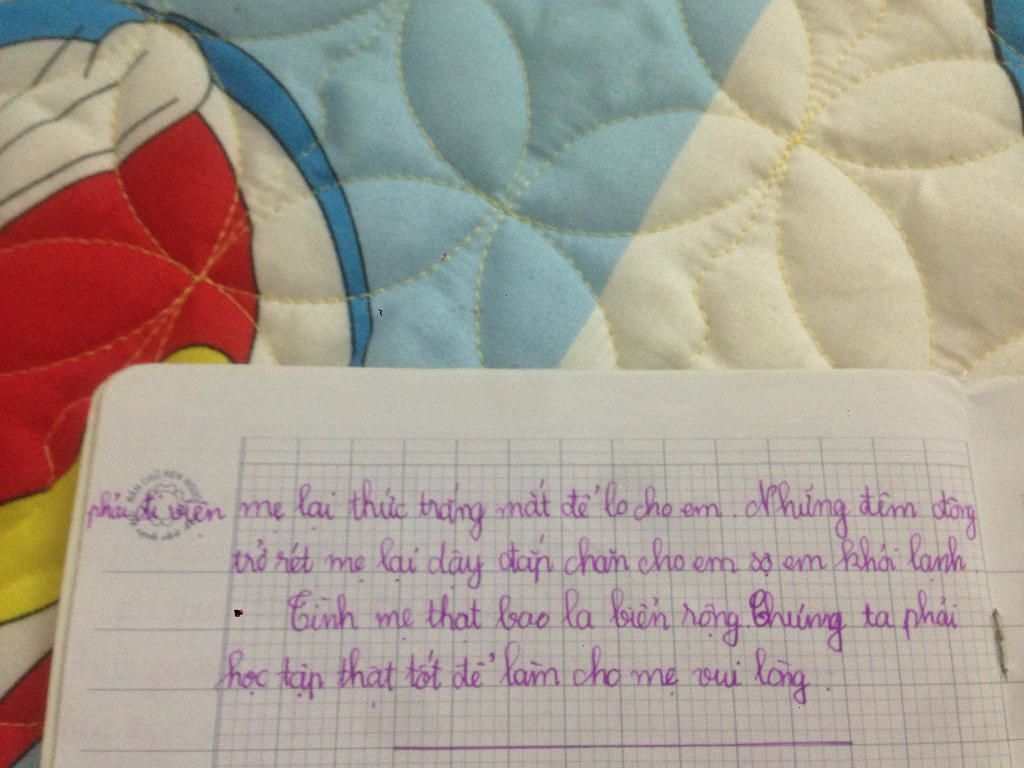 phải đi viện mẹ lại thức trắng mắt để lo cho em. Những đêm đông
trở rét mẹ lại dậy đắp chăn cho em sợ em khỏi lạnh
. Tình mẹ thật bao la biển rộng. Chúng ta phải
học tập thật tốt để làm cho mẹ vui lòng.